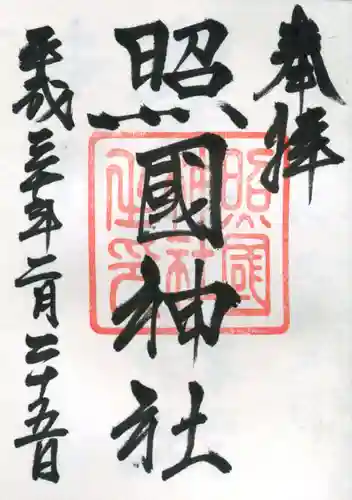 奉拝
照國神社
照國神社之印
平成三十年二月二十五日